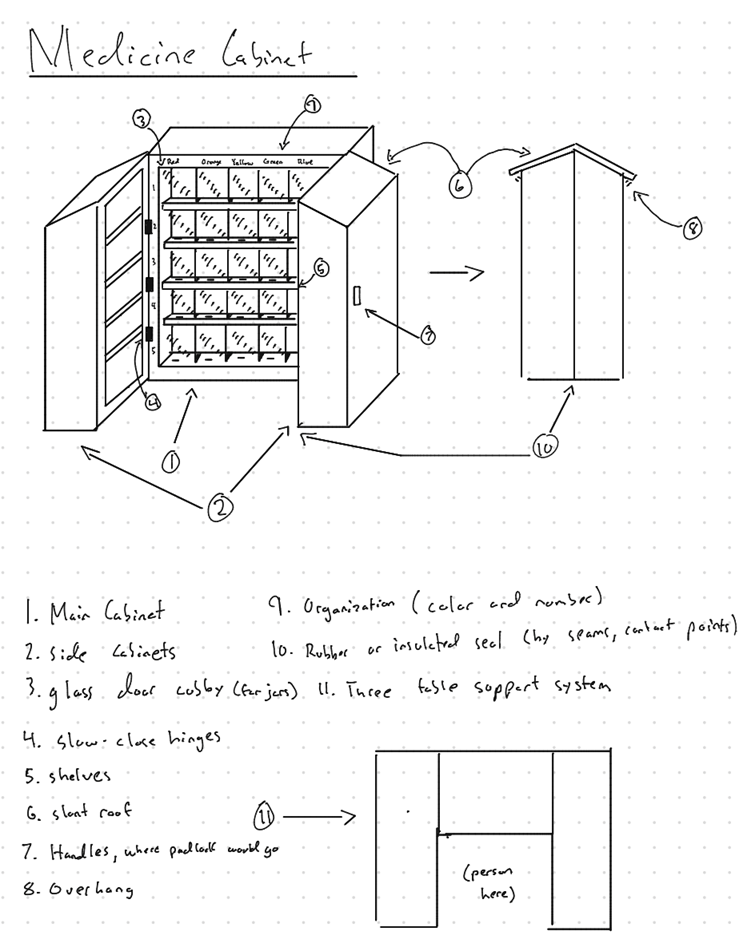 Medicine Cabinet
9
3
Red Orange Yellow Green Blue
6
1
2
8
3
5
4
7
5
4
10
1
2
1. Main Cabinet
9. Organization (color and number)
2. Side Cabinets
10. Rubber or insulated seal (by seams, contact points)
3. glass door cubby (for jars)
11. Three table support system
4. Slow-close hinges
5. shelves
6. slant roof
11
7. Handles, where padlock would go
(person
here)
8. Overhang